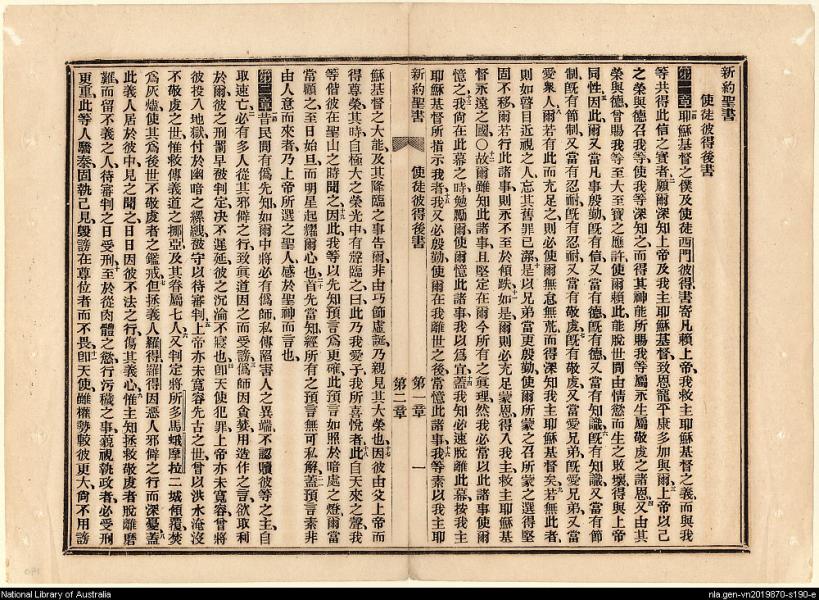 新約聖書
使徒彼得後書
第一章 耶穌基督之僕及使徒西門彼得書寄凡賴上帝我救主耶穌基督之義而與我
等共得此信之寶者願爾深知上帝及我主耶穌基督致恩寵平康多加與爾上帝以己
之榮與德召我等使我等深知之而得其神能所賜我等屬永生屬敬虔之諸恩又由其
榮與德曾賜我等至大至寶之應許使爾賴此能脫世間由情慾而生之敗壞得與上帝
同性因此爾又當凡事殷勤旣有信又當有德旣有德又當有知識旣有知識又當有節
制旣有節制又當有忍耐旣有忍耐又當有敬虔旣有敬虔又當愛兄弟旣愛兄弟又當
愛衆人爾若有此而充足之則必使爾無怠無荒而得深知我主耶穌基督矣若無此者
則如瞽目近視之人忘其舊罪已潔是以兄弟當更殷勤使爾所蒙之召所蒙之選得堅
固不移爾若行此諸事則永不至於傾跌如是爾則必充足蒙恩得入我主救主耶穌基
督永遠之國○故爾雖知此諸事且堅定在爾今所有之眞理然我必當以此諸事使爾
憶之我尙在此幕之時勉勵爾使爾憶此諸事我以爲宜蓋我知必速脫離此幕按我主
耶穌基督所指示我者我又必殷勤使爾在我離世之後常憶此諸事我等素以我主耶
新約聖書 使徒彼得後書 第一章 第二章 一
穌基督之大能及其降臨之事告爾非由巧節虛誕乃親見其大榮也因彼由父上帝而
得尊榮其時自極大之榮光中有聲臨之曰此乃我愛子我所喜悅者此自天來之聲我
等偕彼在聖山之時聞之因此我等以先知預言爲更確此預言如照於暗處之燈爾當
常顧之至日始旦而明星起耀爾心也首先當知經所有之預言無可私解蓋預言素非
由人意而來者乃上帝所選之聖人感於聖神而言也
第二章 昔民間有僞先知如爾中將必有僞師私傳陷害人之異端不認贖彼等之主自
取速亡必有多人從其邪僻之行致眞道因之而受謗僞師因貪婪用造作之言欲取利
於爾彼之刑罰早被判定決不遲延彼之沉淪不寢也卽天使犯罪上帝亦未寬容曾將
彼投入地獄付於幽暗之縲絏被守以待審判上帝亦未寬容先古之世曾以洪水淹沒
不敬虔之世惟救傳義道之挪亞及其眷屬七人又判定將所多馬蛾摩拉二城傾覆焚
爲灰燼使其爲後世不敬虔者之鑑戒但拯義人羅得羅得因惡人邪僻之行而深憂蓋
此義人居於彼中見之聞之日日因彼不法之行傷其義心惟主知拯救敬虔者脫離磨
難而留不義之人待審判之日受刑至於從肉體之慾行污穢之事藐視執政者必受刑
更重此等人驕泰固執己見毀謗在尊位者而不畏卽天使雖權勢較彼更大尙不用謗
National Library of Australia
nla.gen-vn2019870-s190-e